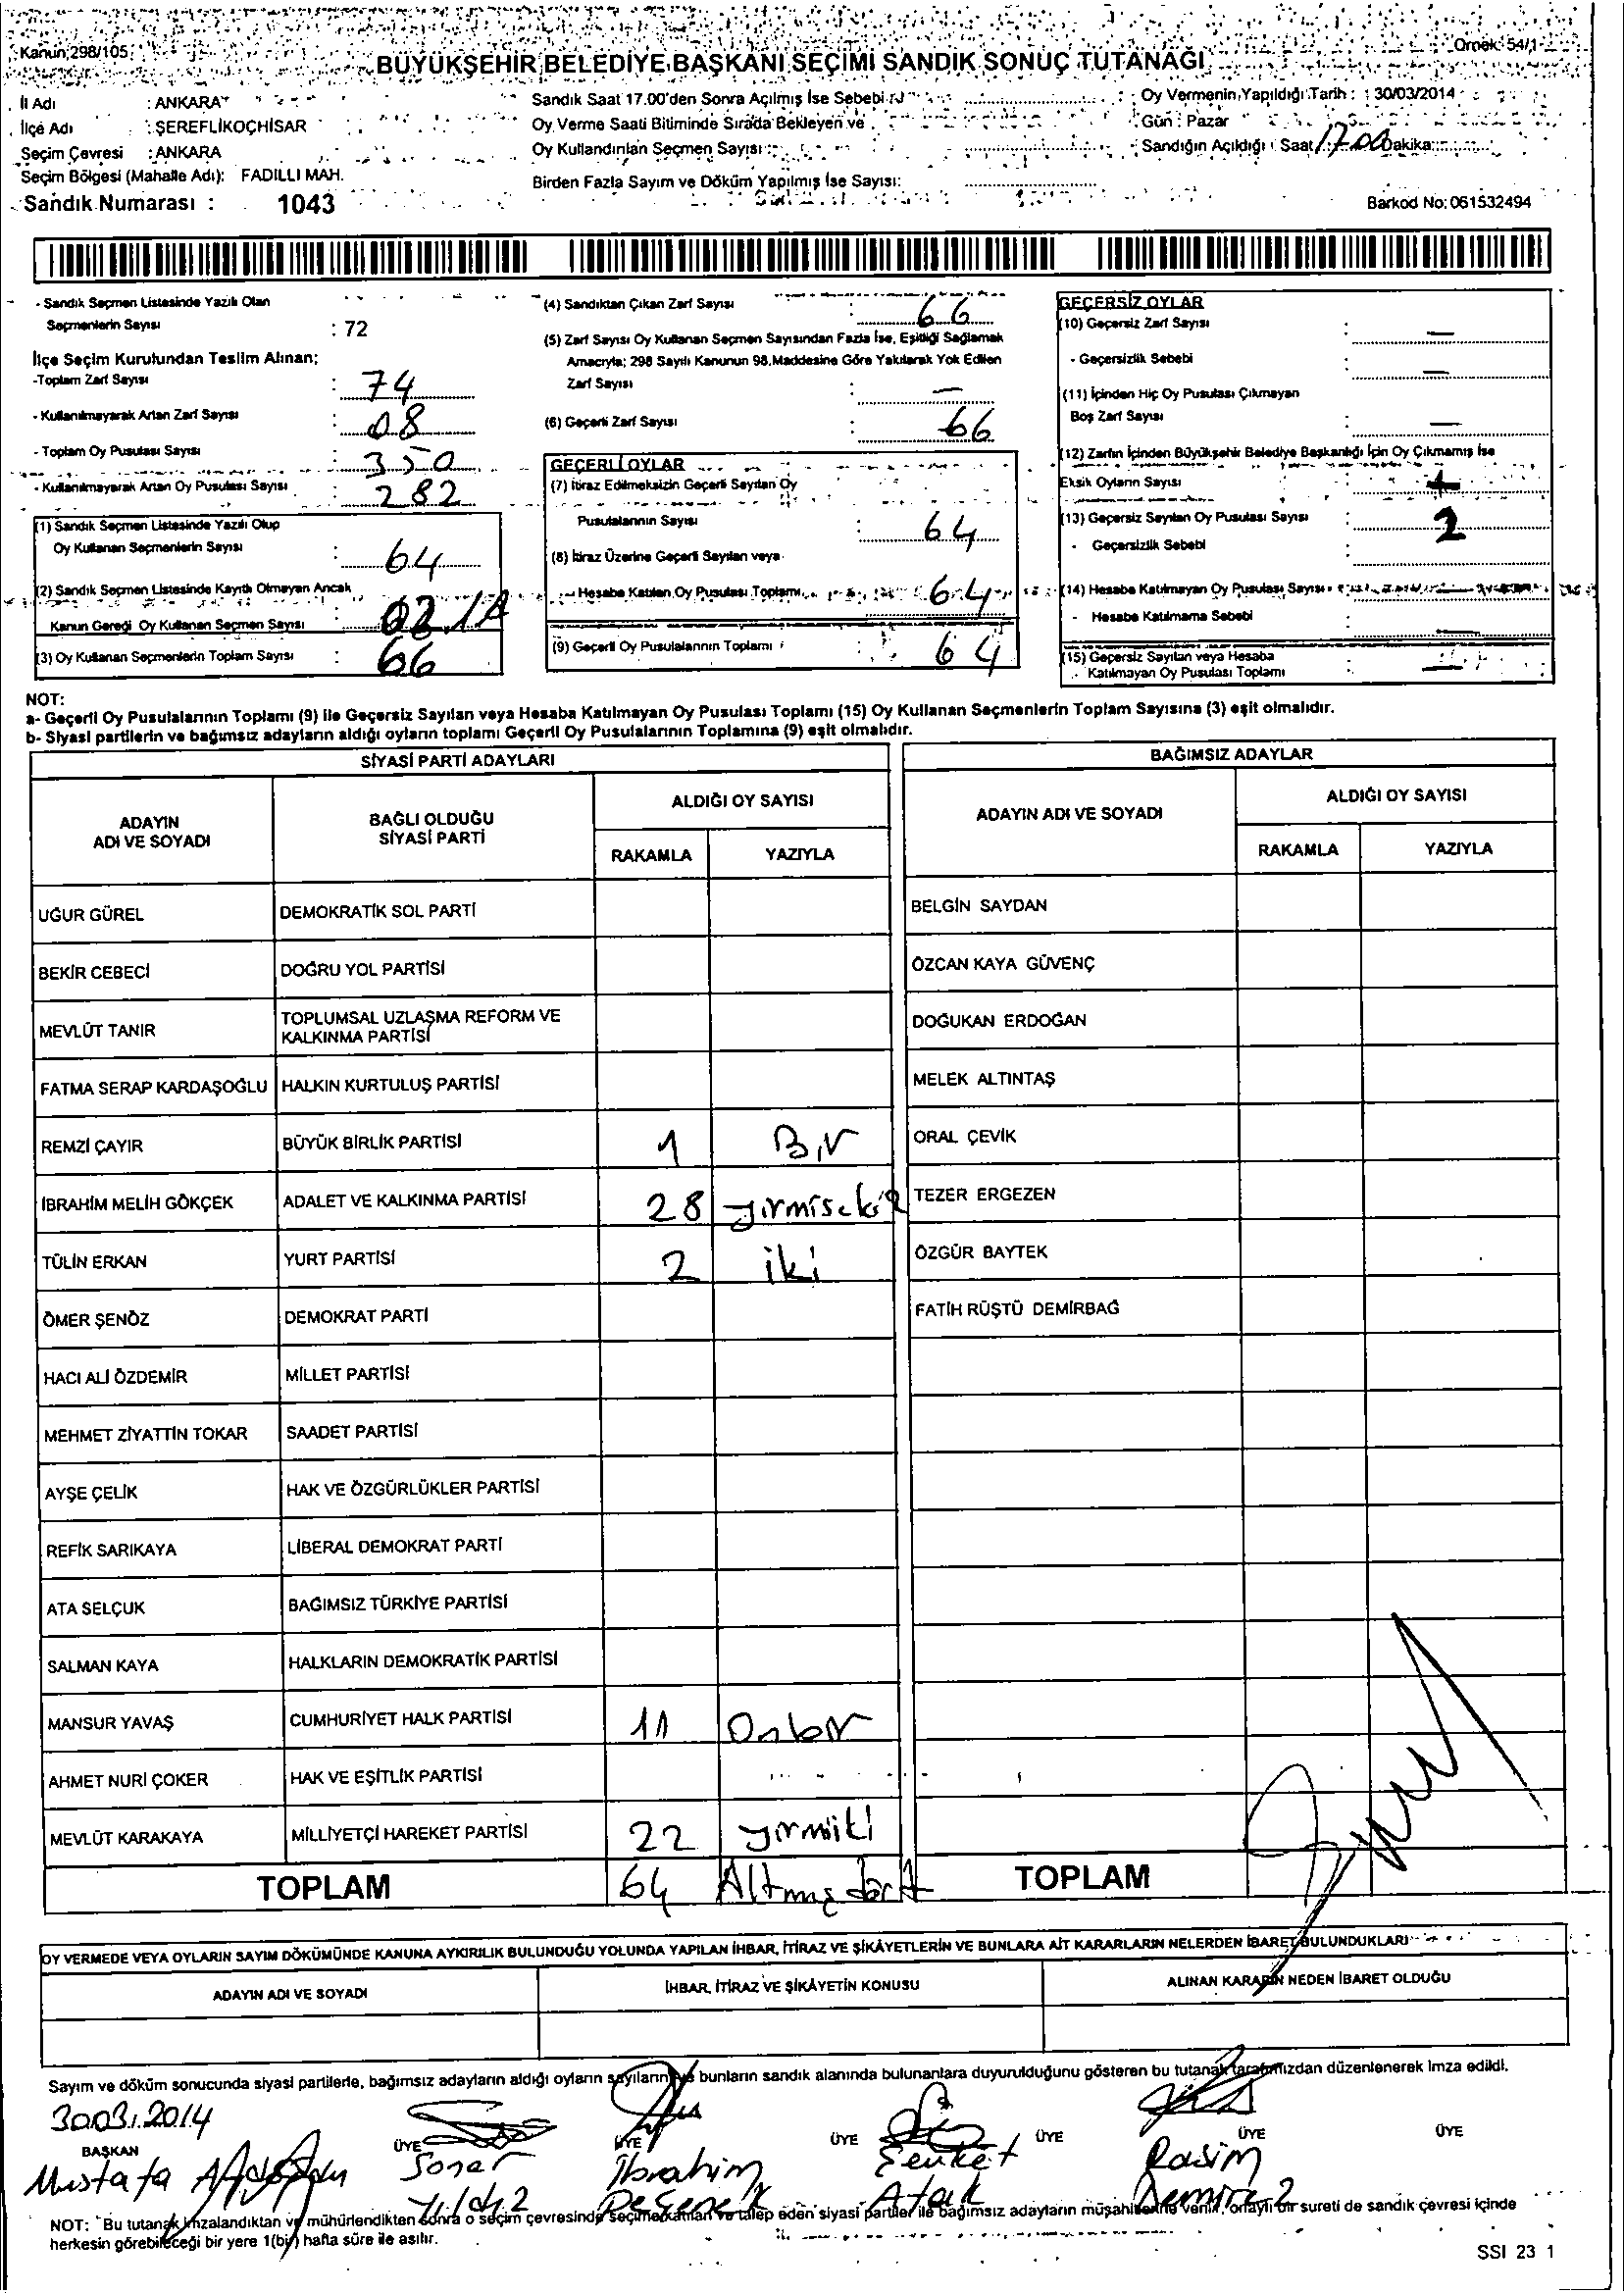 Kanun 298/105
Örnek: 54/1
BÜYÜKŞEHİR BELEDİYE BAŞKANI SEÇİMİ SANDIK SONUÇ TUTANAĞI
İl Adı : ANKARA
İlçe Adı : ŞEREFLİKOÇHİSAR
Seçim Çevresi : ANKARA
Seçim Bölgesi (Mahalle Adı): FADILLI MAH.
Sandık Numarası : 1043
Sandık Saat 17.00'den Sonra Açılmış İse Sebebi
Oy Verme Saati Bitiminde Sırada Bekleyen ve
Oy Kullandırılan Seçmen Sayısı :
Birden Fazla Sayım ve Döküm Yapılmış İse Sayısı:
Oy Vermenin Yapıldığı Tarih : 30/03/2014
Gün : Pazar
Sandığın Açıldığı Saat 17.00 Dakika
Barkod No: 061532494
- Sandık Seçmen Listesinde Yazılı Olan
Seçmenlerin Sayısı : 72
İlçe Seçim Kurulundan Teslim Alınan;
-Toplam Zarf Sayısı : 74
- Kullanılmayarak Artan Zarf Sayısı : 08
- Toplam Oy Pusulası Sayısı : 350
- Kullanılmayarak Artan Oy Pusulası Sayısı : 282
(1) Sandık Seçmen Listesinde Yazılı Olup
Oy Kullanan Seçmenlerin Sayısı : 64
(2) Sandık Seçmen Listesinde Kayıtlı Olmayan Ancak
Kanun Gereği Oy Kullanan Seçmen Sayısı :
(3) Oy Kullanan Seçmenlerin Toplam Sayısı : 66
(4) Sandıktan Çıkan Zarf Sayısı : 66
(5) Zarf Sayısı Oy Kullanan Seçmen Sayısından Fazla İse, Eşitliği Sağlamak
Amacıyla; 298 Sayılı Kanunun 98.Maddesine Göre Yakılarak Yok Edilen
Zarf Sayısı : –
(6) Geçerli Zarf Sayısı : 66
GEÇERLİ OYLAR
(7) İtiraz Edilmeksizin Geçerli Sayılan Oy
Pusulalarının Sayısı : 64
(8) İtiraz Üzerine Geçerli Sayılan veya
Hesaba Katılan Oy Pusulası Toplamı 64
(9) Geçerli Oy Pusulalarının Toplamı : 64
GEÇERSİZ OYLAR
(10) Geçersiz Zarf Sayısı : –
- Geçersizlik Sebebi : –
(11) İçinden Hiç Oy Pusulası Çıkmayan
Boş Zarf Sayısı : –
(12) Zarfın İçinden Büyükşehir Belediye Başkanlığı İçin Oy Çıkmamış İse
Eksik Oyların Sayısı :
(13) Geçersiz Sayılan Oy Pusulası Sayısı : 2
- Geçersizlik Sebebi :
(14) Hesaba Katılmayan Oy Pusulası Sayısı
- Hesaba Katılmama Sebebi : –
(15) Geçersiz Sayılan veya Hesaba
Katılmayan Oy Pusulası Toplamı : –
NOT:
a- Geçerli Oy Pusulalarının Toplamı (9) ile Geçersiz Sayılan veya Hesaba Katılmayan Oy Pusulası Toplamı (15) Oy Kullanan Seçmenlerin Toplam Sayısına (3) eşit olmalıdır.
b- Siyasi partilerin ve bağımsız adayların aldığı oyların toplamı Geçerli Oy Pusulalarının Toplamına (9) eşit olmalıdır.
SİYASİ PARTİ ADAYLARI
ADAYIN ADI VE SOYADI
BAĞLI OLDUĞU SİYASİ PARTİ
ALDIĞI OY SAYISI
RAKAMLA YAZIYLA
UĞUR GÜREL DEMOKRATİK SOL PARTİ
BEKİR CEBECİ DOĞRU YOL PARTİSİ
MEVLÜT TANIR TOPLUMSAL UZLAŞMA REFORM VE
KALKINMA PARTİSİ
FATMA SERAP KARDAŞOĞLU HALKIN KURTULUŞ PARTİSİ
REMZİ ÇAYIR BÜYÜK BİRLİK PARTİSİ 1 Bir
İBRAHİM MELİH GÖKÇEK ADALET VE KALKINMA PARTİSİ 28 yirmisekiz
TÜLİN ERKAN YURT PARTİSİ 2 iki
ÖMER ŞENÖZ DEMOKRAT PARTİ
HACI ALİ ÖZDEMİR MİLLET PARTİSİ
MEHMET ZİYATTİN TOKAR SAADET PARTİSİ
AYŞE ÇELİK HAK VE ÖZGÜRLÜKLER PARTİSİ
REFİK SARIKAYA LİBERAL DEMOKRAT PARTİ
ATA SELÇUK BAĞIMSIZ TÜRKİYE PARTİSİ
SALMAN KAYA HALKLARIN DEMOKRATİK PARTİSİ
MANSUR YAVAŞ CUMHURİYET HALK PARTİSİ 11 Onbir
AHMET NURİ ÇOKER HAK VE EŞİTLİK PARTİSİ
MEVLÜT KARAKAYA MİLLİYETÇİ HAREKET PARTİSİ 22 yirmiiki
TOPLAM 64 Altmış dört
BAĞIMSIZ ADAYLAR
ADAYIN ADI VE SOYADI
ALDIĞI OY SAYISI
RAKAMLA YAZIYLA
BELGİN SAYDAN
ÖZCAN KAYA GÜVENÇ
DOĞUKAN ERDOĞAN
MELEK ALTINTAŞ
ORAL ÇEVİK
TEZER ERGEZEN
ÖZGÜR BAYTEK
FATİH RÜŞTÜ DEMİRBAĞ
TOPLAM
OY VERMEDE VEYA OYLARIN SAYIM DÖKÜMÜNDE KANUNA AYKIRILIK BULUNDUĞU YOLUNDA YAPILAN İHBAR, İTİRAZ VE ŞİKÂYETLERİN VE BUNLARA AİT KARARLARIN NELERDEN İBARET BULUNDUKLARI
ADAYIN ADI VE SOYADI İHBAR, İTİRAZ VE ŞİKÂYETİN KONUSU ALINAN KARARIN NEDEN İBARET OLDUĞU
Sayım ve döküm sonucunda siyasi partilerle, bağımsız adayların aldığı oyların sayılarını ve bunların sandık alanında bulunanlara duyurulduğunu gösteren bu tutanak tarafımızdan düzenlenerek imza edildi.
30.03.2014
BAŞKAN ÜYE ÜYE ÜYE ÜYE ÜYE ÜYE
Mustafa Soner İbrahim Şevket Rasim
Yıldız Atak
NOT: Bu tutanak imzalandıktan ve mühürlendikten sonra o seçim çevresinde seçime katılan ve talep eden siyasi partiler ile bağımsız adayların müşahitlerine verilir, onaylı bir sureti de sandık çevresi içinde
herkesin görebileceği bir yere 1(bir) hafta süre ile asılır.
SSI 23 1